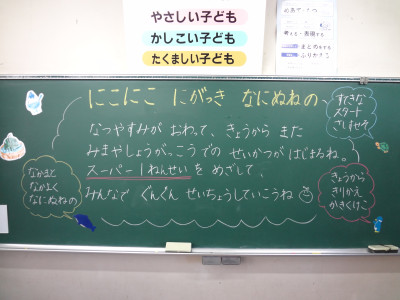 やさしい子ども
かしこい子ども
たくましい子ども
にこにこ にがっき なにぬねの
なつやすみが おわって、きょうから また
みまやしょうがっこうでの せいかつがはじまるね。
スーパー1ねんせいを めざして、
みんなで ぐんぐん せいちょうしていこうね
すてきな
スタート
さしすせそ
なかまと
なかよく
なにぬねの
きょうから
きりかえ
かきくけこ